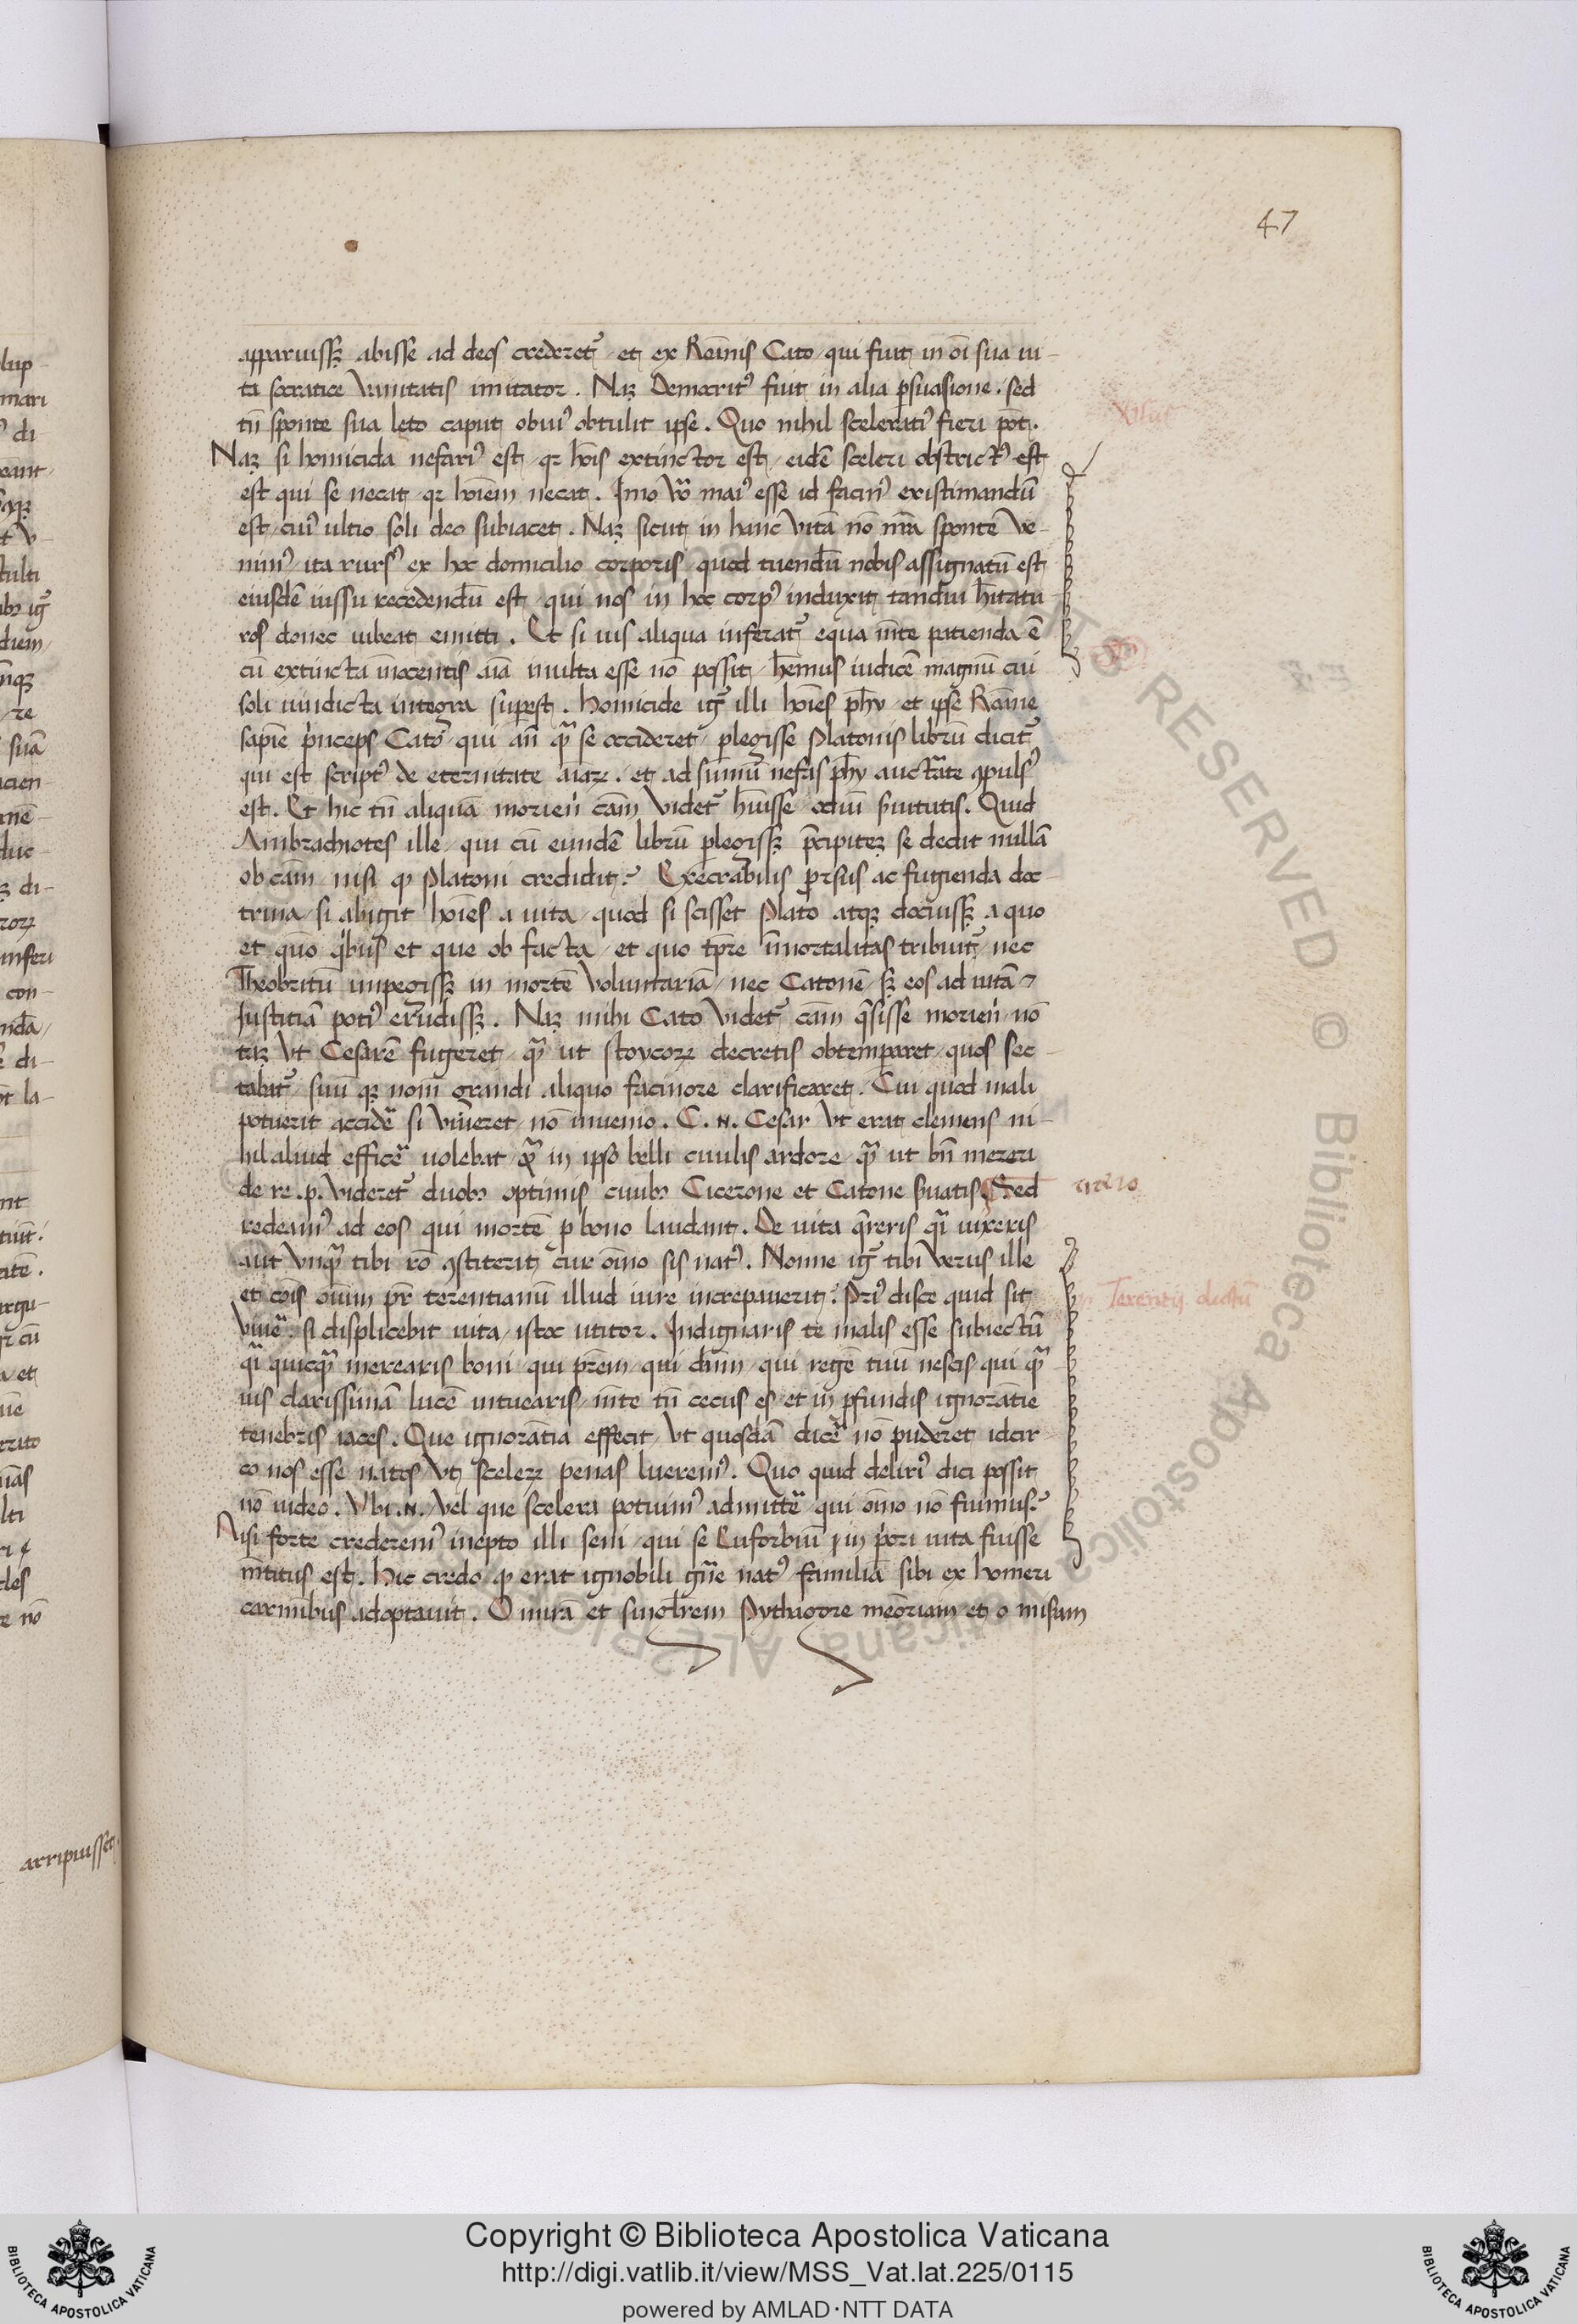 47
apparuissꝫ abisse ad deos crederet᷒ et ex Romīs Cato qui fuit in oī sua ui-
ta socratice vanitatis imitator. Naꝫ Democritꝰ fuit in alia ꝑsuasione. sed
tn̄ sponte sua leto caput obuiꝰ obtulit ipse. Quo nihil sceleratiꝰ fieri pōt.
Naꝫ si homicida nefariꝰ est qꝛ hoīs extinctor est eidē sceleri obstrictꝰ est
est qui se necat qꝛ hoīem necat. Imo vō maiꝰ esse id facinꝰ existimandū
est cuiꝰ ultio soli deo subiacet. Naꝫ sicut in hanc vitā nō nr̄a sponte ve-
nimꝰ ita rursꝰ ex hoc domicilio corporis quod tuendū nobis assignatū est
eiusdē iussu recedendū est qui nos in hoc corpꝰ induxit tandiu hītatu
ros donec iubeat emitti. Et si uis aliqua inferat᷒ equa mēte patienda ē
cū extincta īnocentis aīa inulta esse nō possit hēmus iudicē magnū cui
soli uindicta integra suꝑest. Homicide ig᷒ illi hoīes ph̄y et ipse Romāe
sapiēe pͥnceps Cato qui an̄ qᷓ se occideret ꝑlegisse Platonis librū dicit᷒
qui est scriptꝰ de eternitate aīaꝝ. et ad sūmū nefas ph̄y auctātate ꝯpulsꝰ
est. Et hic tn̄ aliquā moriēn̄ cām videt᷒ hūisse odiū ẜuitutis. Quid
Ambrachiotes ille qui cū eundē librū ꝑlegissꝫ p̄cipiteꝫ se dedit nullā
ob cām nisi ꝙ Platoni credidit? Execrabilis ꝓrsus ac fugienda doc-
trina si abigit hoīes a uita quod si scisset Plato atqꝫ docuissꝫ a quo
et quō qͥbus et que ob facta et quo tp̄re īmortalitas tribuit᷒ nec
Theobritū impegissꝫ in mortē voluntariā nec Catonē sꝫ eos ad uitā ⁊
Iustitiā potiꝰ erudissꝫ. Naꝫ mihi Cato videt᷒ cām q̄sisse moriēn̄ nō
taꝫ vt Cesarē fugeret qᷓ ut stoycoꝝ decretis obtemperaret quos sec-
tabat᷒ suū qꝫ nomē grandi aliquo facinore clarificaret. Cui quod mali
potuerit accidē si viueret nō inuenio. C. N. Cesar vt erat clemens ni-
hil aliud efficē uolebat qᷓ in ipso belli ciuilis ardore qᷓ ut bn̄ mereri
de re .p. videret᷒ duobꝫ optimis ciuibꝫ Cicerone et Catone ẜuatis. Sed
redeamꝰ ad eos qui mortē ꝓ bono laudant. De uita q̄reris qᷓi uixeris
aut vnqᷓ tibi rō ꝯstiterit cur oīno sis natꝰ. Nonne ig᷒ tibi verus ille
et cōis oīum pr̄ terentianū illud iure increpauerit? Priꝰ disce quid sit
viuē. si displicebit uita istoc utitor. Indignaris te malis esse subiectū
qᷓi quicqᷓ merearis boni qui pr̄em qui dn̄m qui regē tuū nescis qui qᷓ
uis clarissimā lucē intuearis mēte tn̄ cecus es et in ꝓfundis ignorātie
tenebris iaces. Que ignorātia effecit vt quosdā dicē nō puderet idcir
co nos esse natos vt sceleꝝ penas lueremꝰ. Quo quid deliriꝰ dici possit
nō uideo. Vbi .N. vel que scelera potuimꝰ admittē qui oīno nō fuimus?
Nisi forte crederemꝰ inepto illi seni qui se Euforbiū in pͥori uita fuisse
mētitus est. Hic credo ꝙ erat ignobili gn̄e natꝰ familiā sibi ex homeri
carminibus adoptauit. O mirā et singlrem Pythagore memōriam et o misam
Terentij dictū
arripuisset
Copyright © Biblioteca Apostolica Vaticana
http://digi.vatlib.it/view/MSS_Vat.lat.225/0115
powered by AMLAD·NTT DATA